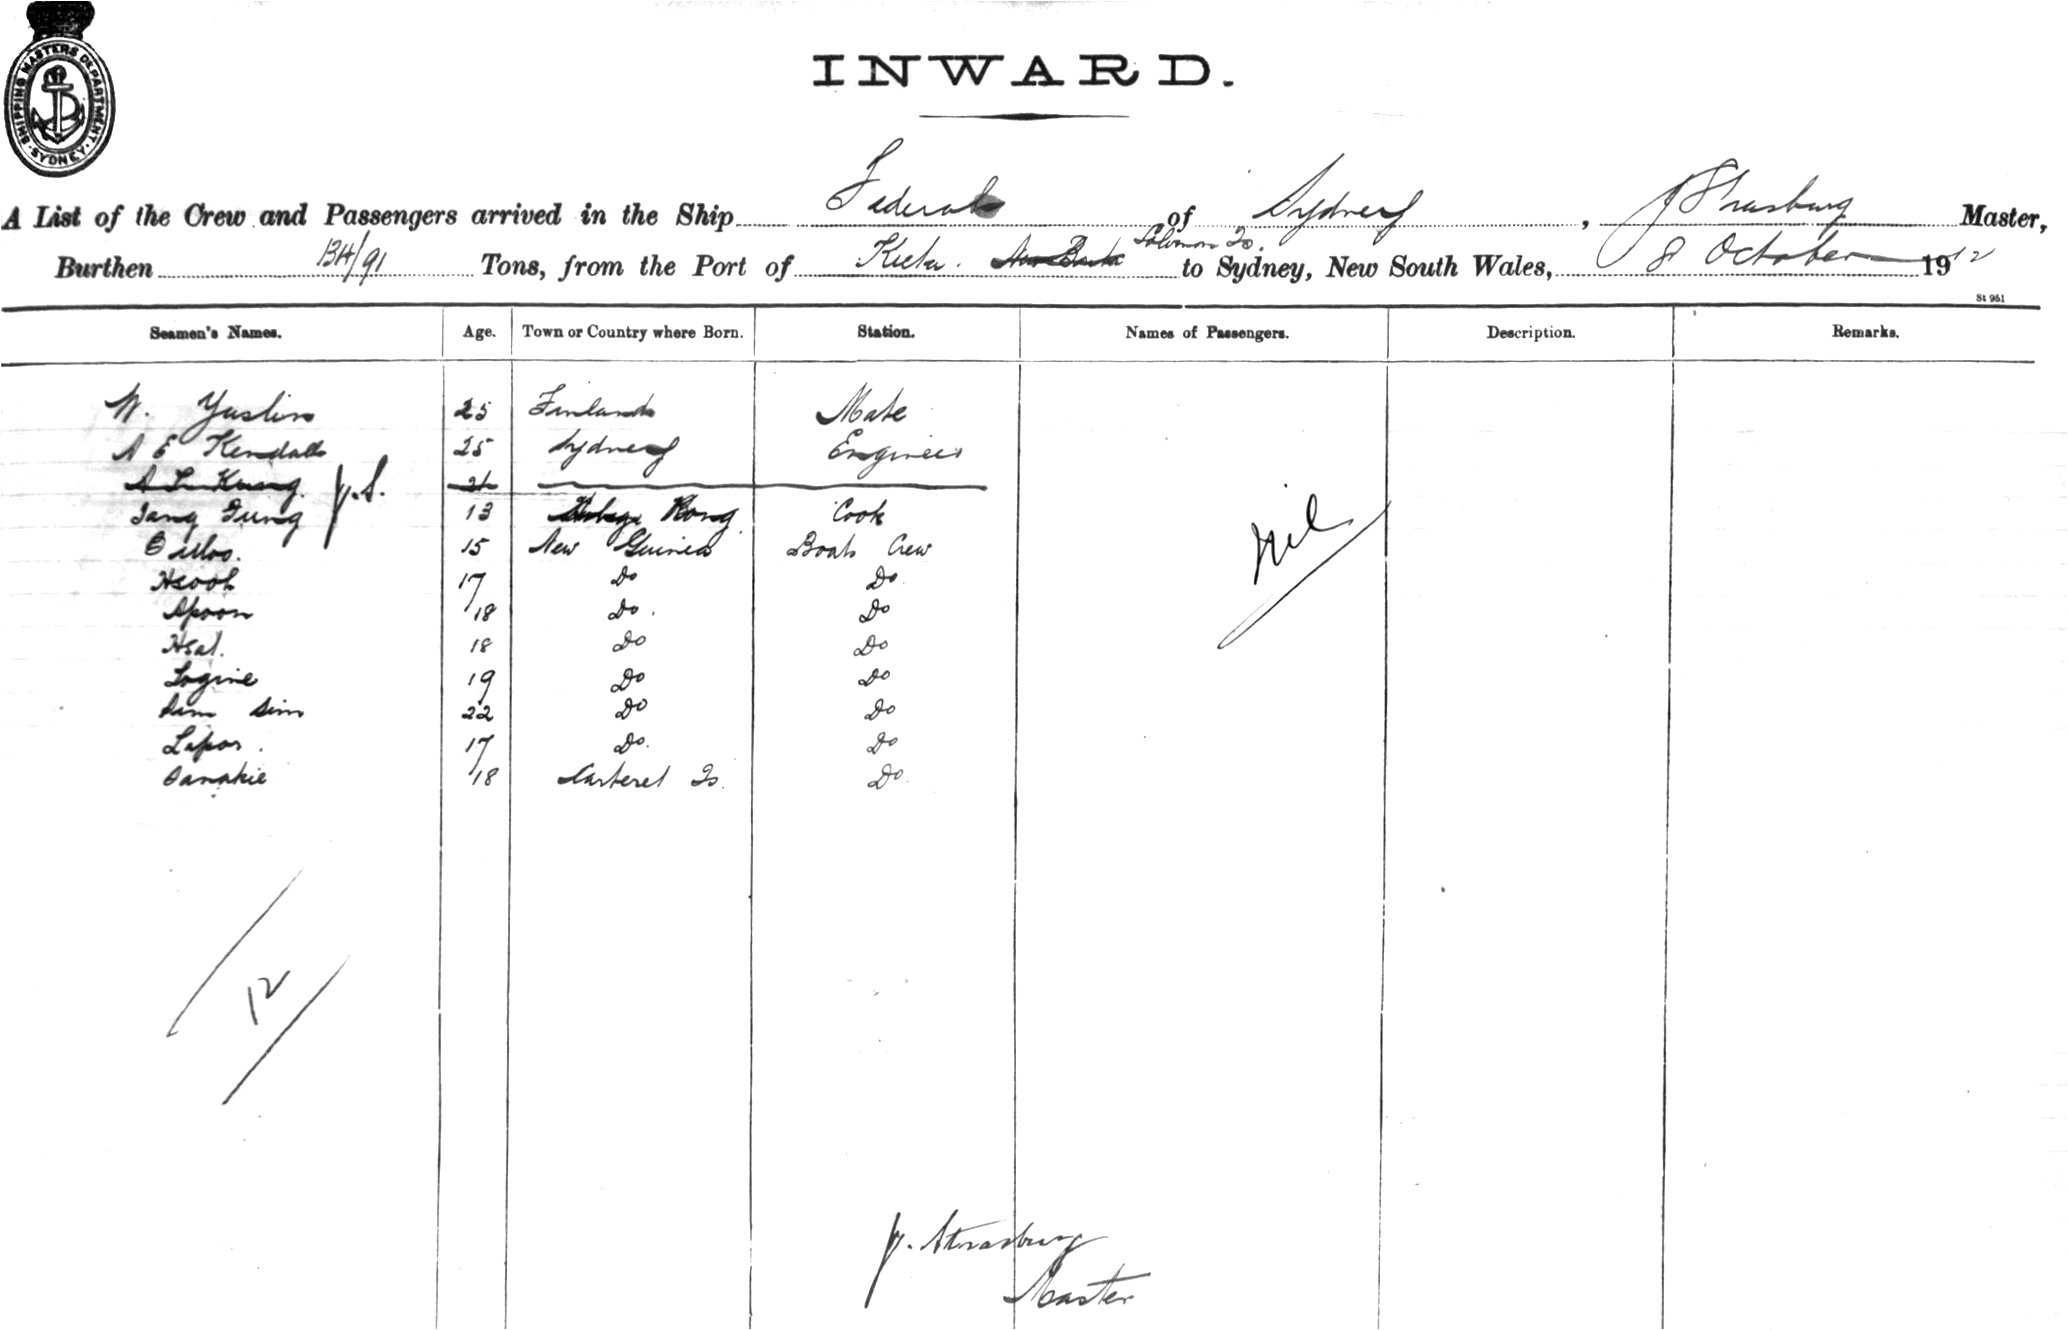 SHIPPING MASTERS DEPARTMENT. SYDNEY.
INWARD.
A List of the Crew and Passengers arrived in the Ship Federal of Sydney, J Strasburg Master,
Burthen 134/91 Tons, from the Port of Kieta. Solomon Is. to Sydney, New South Wales, 8 October 1912
St 951
Seamen's Names. Age. Town or Country where Born. Station. Names of Passengers. Description. Remarks.
W. Yuslin 25 Finland Mate
A E Kendall 25 Sydney Engineer
J.S. 21
Tang Gung 13 Kong Cook
15 New Guinea Boats Crew
17 Do Do
Apoon 18 Do. Do
Hsal. 18 Do Do
Logine 19 Do Do
Sim Sim 22 Do Do
Lapor. 17 Do. Do
Sanakie 18 Carteret Is. Do.
Nil
12
J. Strasburg
Master